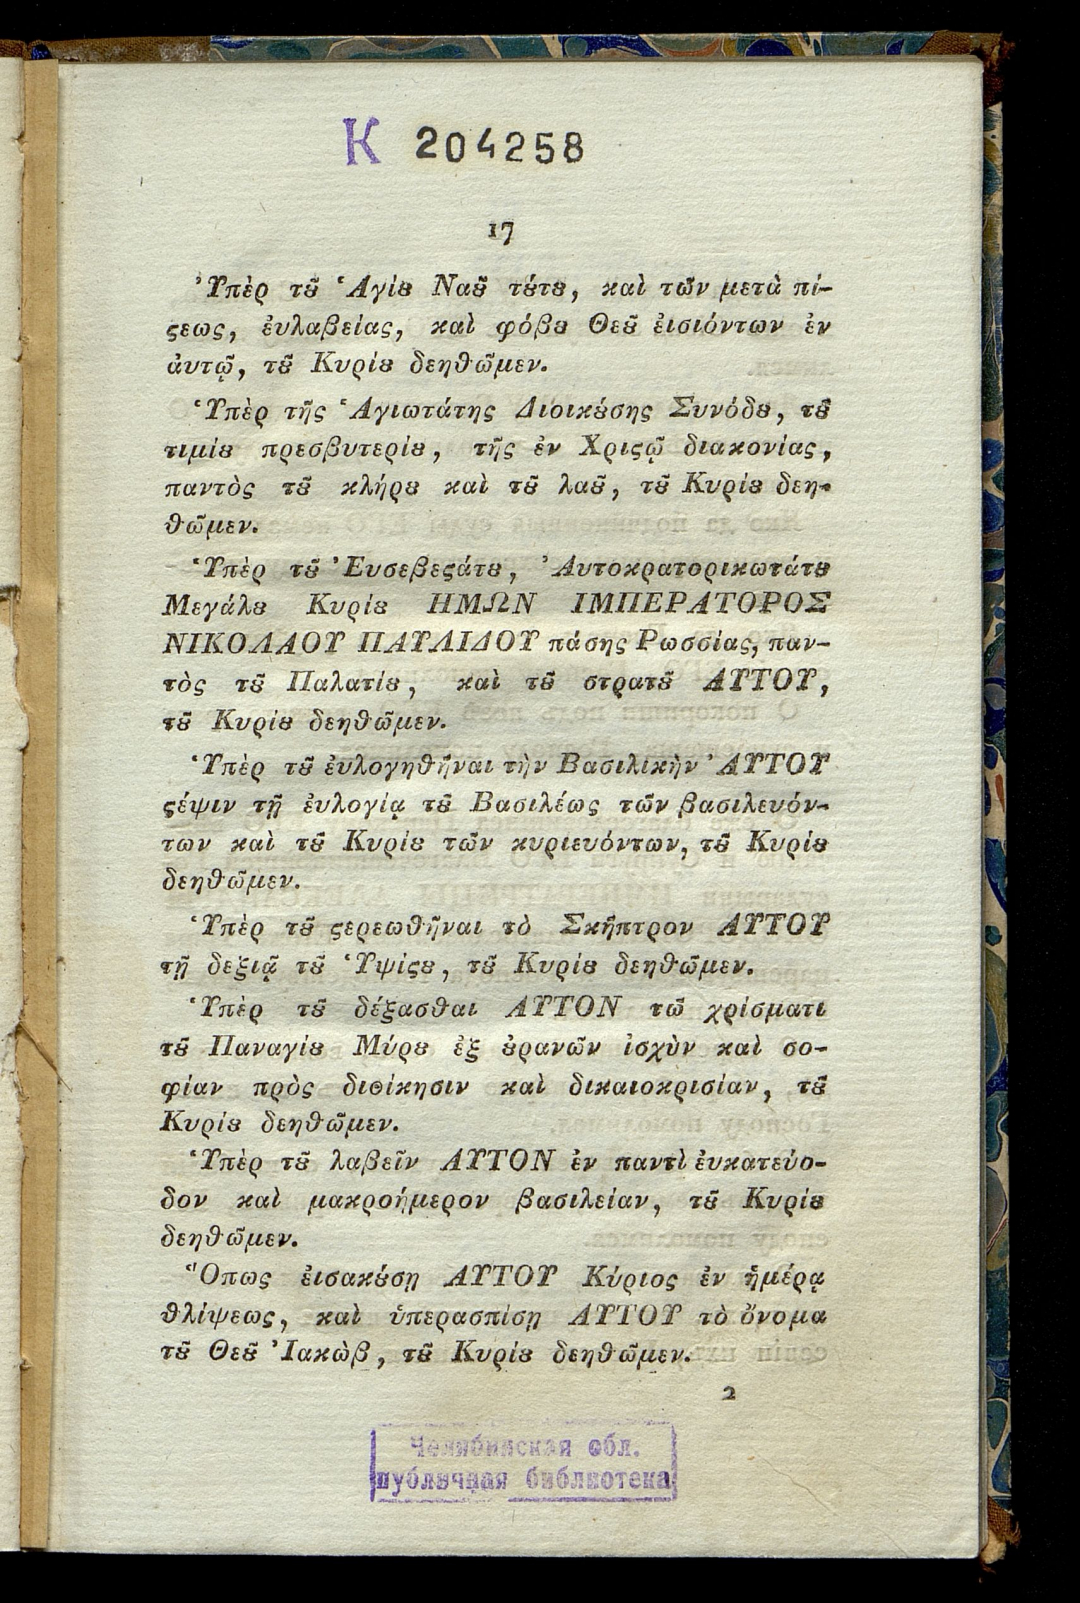 К 204258
17
Ὑπὲρ τȣ͂ Ἁγίȣ Ναȣ͂ τȣ́τȣ, καὶ τῶν μετὰ πί-
ϛεως, ἐυλαβείας, καὶ φόβȣ Θεȣ͂ ἐισιόντων ἐν
ἀυτῷ, τȣ͂ Κυρίȣ δεηθῶμεν.
Ὑπὲρ τῆς Ἁγιωτάτης Διοικȣ́σης Συνόδȣ, τȣ͂
τιμίȣ πρεσβυτερίȣ, τῆς ἐν Χριϛῷ διακονίας,
παντὸς τȣ͂ κλήρȣ καὶ τȣ͂ λαȣ͂, τȣ͂ Κυρίȣ δεη-
θῶμεν.
Ὑπὲρ τȣ͂ Ἐυσεβεϛάτȣ, Ἀυτοκρατορικωτάτȣ
Μεγάλȣ Κυρίȣ ΗΜΩΝ ΙΜΠΕΡΑΤΟΡΟΣ
ΝΙΚΟΛΑΟΥ ΠΑΥΛΙΔΟΥ πάσης Ρωσσίας, παν-
τὸς τȣ͂ Παλατίȣ, καὶ τȣ͂ στρατȣ͂ ΑΥΤΟΥ,
τȣ͂ Κυρίȣ δεηθῶμεν.
Ὑπὲρ τȣ͂ ἐυλογηθῆναι τὴν Βασιλικὴν ἈΥΤΟΥ
ϛέψιν τῇ ἐυλογίᾳ τȣ͂ Βασιλέως τῶν βασιλευόν-
των καὶ τȣ͂ Κυρίȣ τῶν κυριευόντων, τȣ͂ Κυρίȣ
δεηθῶμεν.
Ὑπὲρ τȣ͂ ϛερεωθῆναι τὸ Σκῆπτρον ΑΥΤΟΥ
τῇ δεξιᾷ τȣ͂ Ὑψίϛȣ, τȣ͂ Κυρίȣ δεηθῶμεν.
Ὑπὲρ τȣ͂ δέξασθαι ΑΥΤΟΝ τῶ χρίσματι
τȣ͂ Παναγίȣ Μύρȣ ἐξ ȣ̓ρανῶν ἰσχὺν καὶ σο-
φίαν πρὸς διθίκησιν καὶ δικαιοκρισίαν, τȣ͂
Κυρίȣ δεηθῶμεν.
Ὑπὲρ τȣ͂ λαβεῖν ΑΥΤΟΝ ἐν παντὶ ἐυκατεύο-
δον καὶ μακροήμερον βασιλείαν, τȣ͂ Κυρίȣ
δεηθῶμεν.
Ὅπως ἐισακȣ́σῃ ΑΥΤΟΥ Κύριος ἐν ἡμέρᾳ
θλίψεως, καὶ ὑπερασπίσῃ ΑΥΤΟΥ τὸ ὄνομα
τȣ͂ Θεȣ͂ Ἰακὼβ, τȣ͂ Κυρίȣ δεηθῶμεν.
2
Челябинская обл.
публичная библиотека